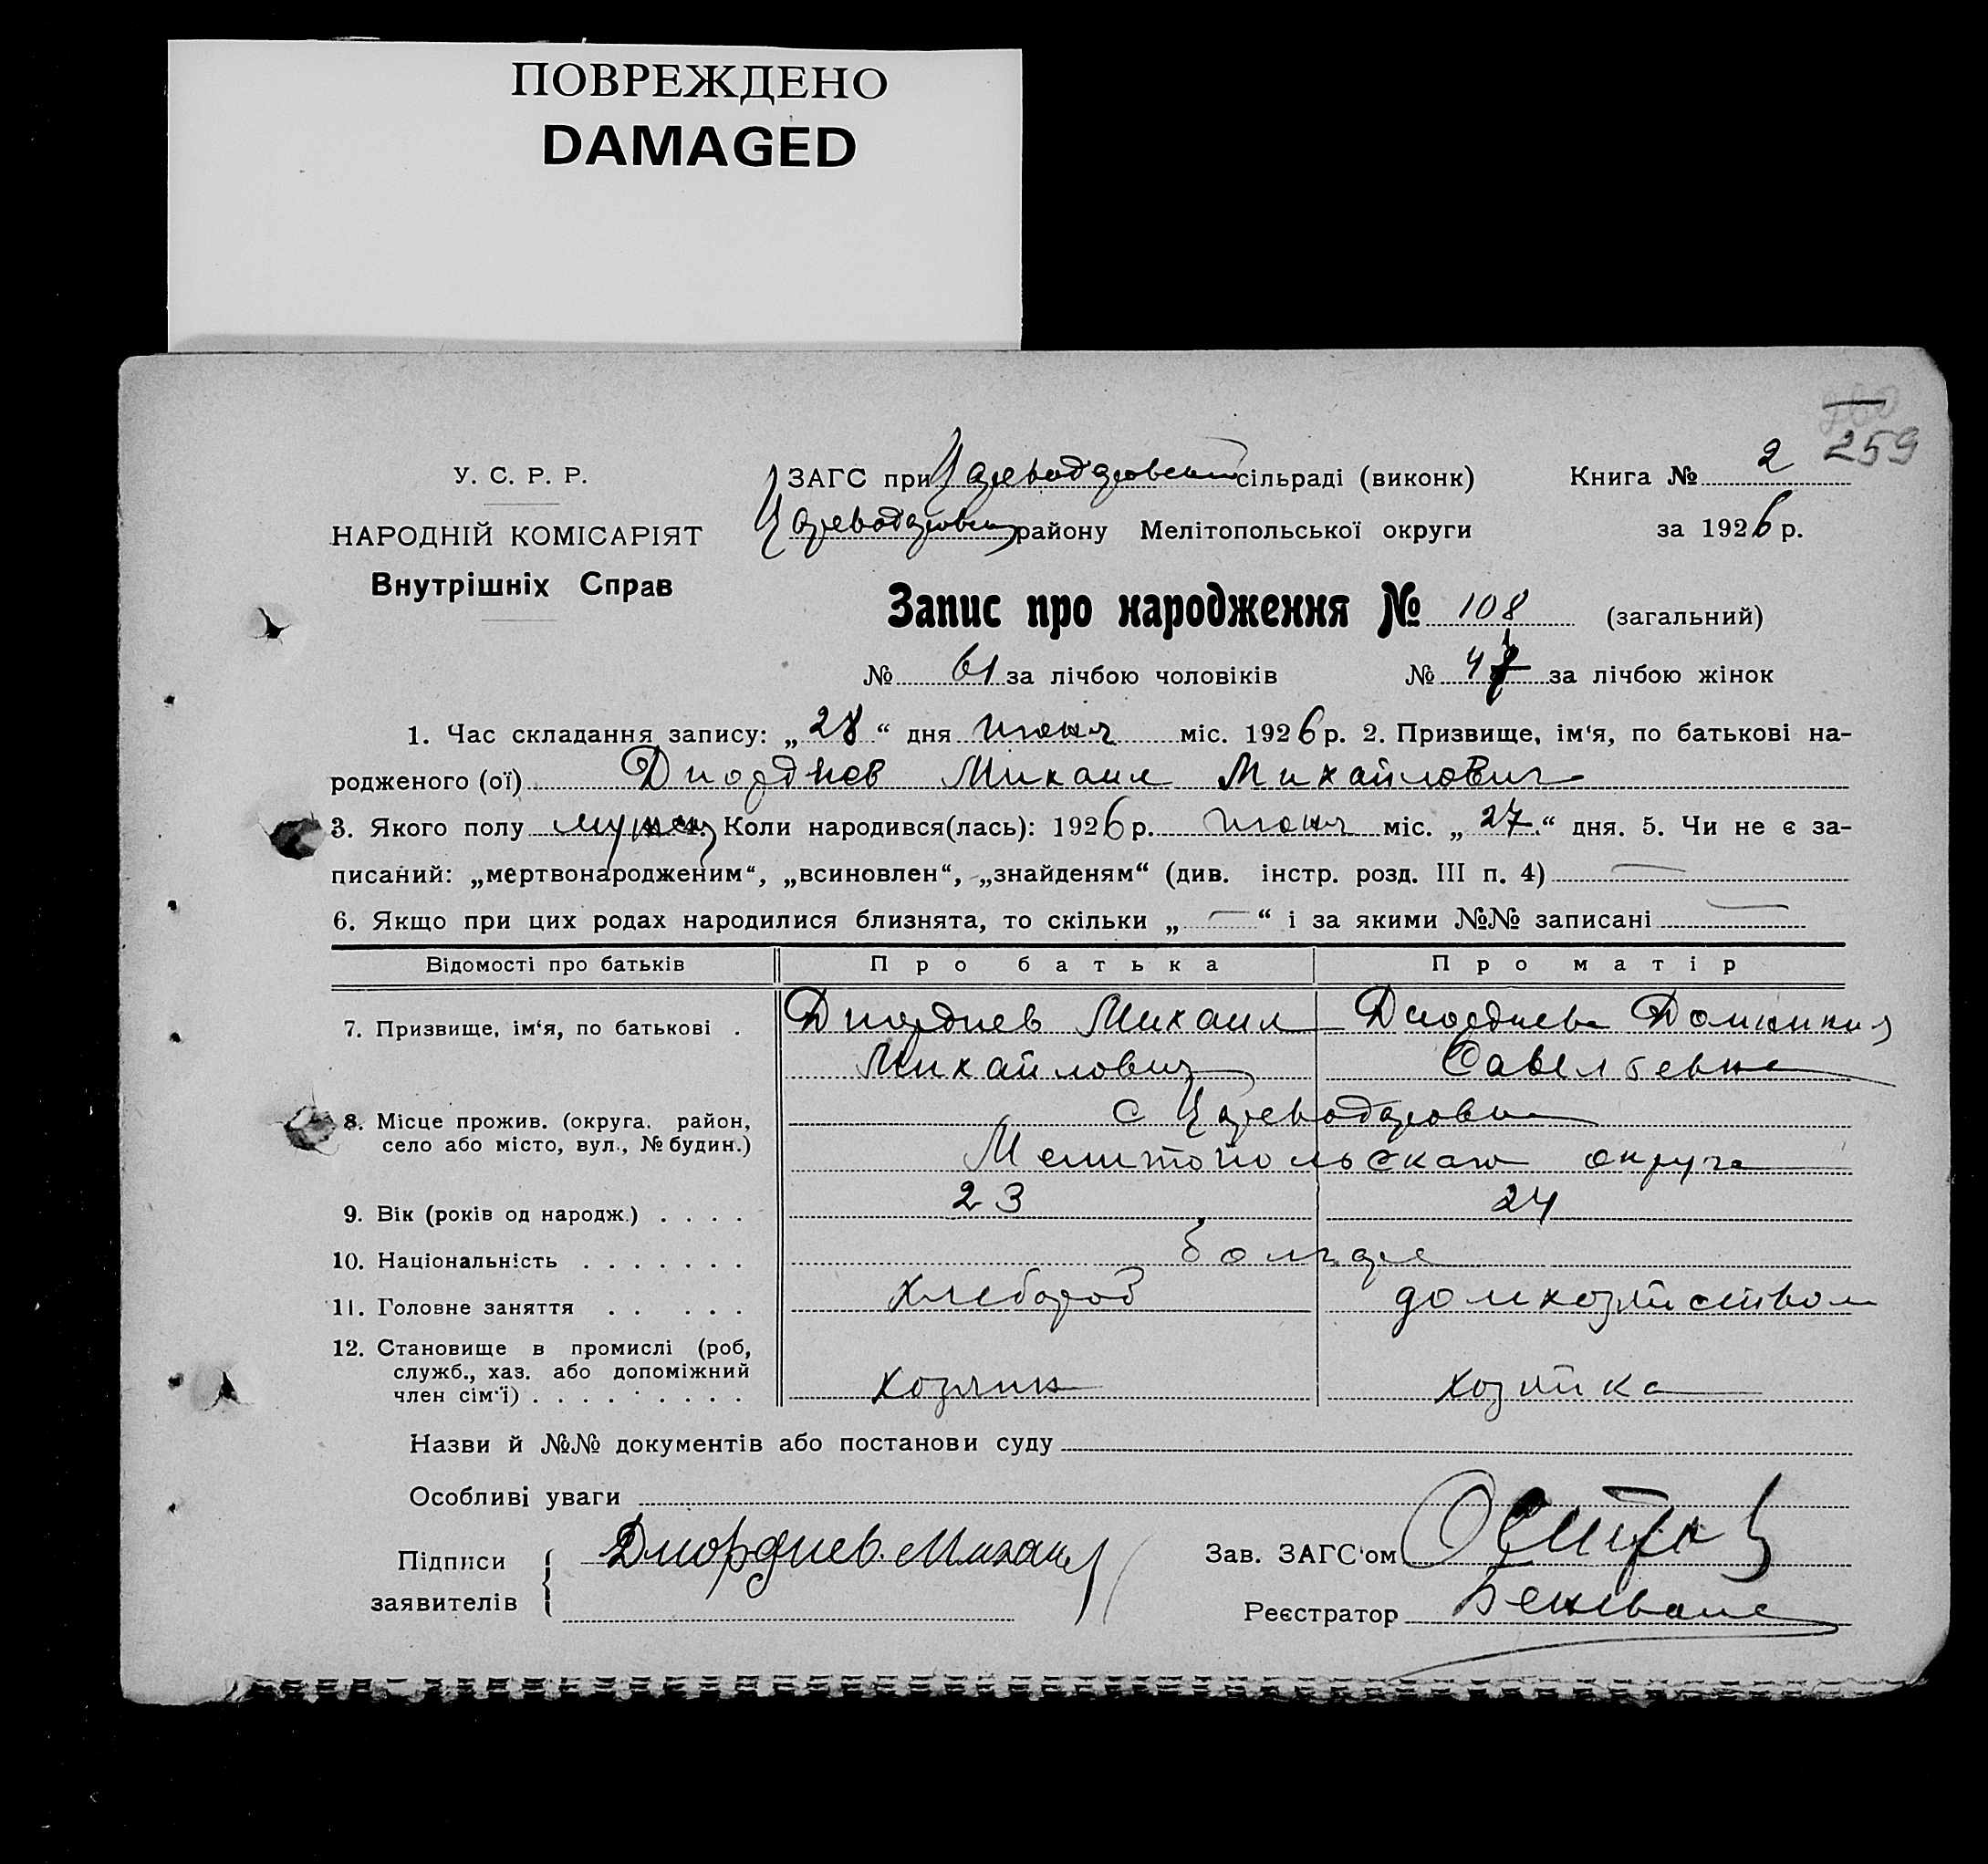 ПОВРЕЖДЕНО
DAMAGED
259
У. С. Р. Р.
НАРОДНІЙ КОМІСАРІЯТ
Внутрішніх Справ
ЗАГС при Цареводаровском сільраді (виконк) Книга № 2
Цареводаровск району Мелітопольської округи за 1926 р.
Запис про народження № 108 (загальний)
№ 61 за лічбою чоловіків № 47 за лічбою жінок
1. Час складання запису: „28“ дня июня міс. 1926 р. 2. Призвище, ім‘я, по батькові на-
родженого (ої) Диордиев Михаил Михайлович
3. Якого полу мужск. Коли народився(лась): 1926 р. июня міс. „27.“ дня. 5. Чи не є за-
писаний: „мертвонародженим“, „всиновлен“, „знайденям“ (див. інстр. розд. III п. 4) —
6. Якщо при цих родах народилися близнята, то скільки „—“ і за якими №№ записані —
Відомості про батьків Про батька Про матір
7. Призвище, ім‘я, по батькові . Диордиев Михаил Диордиева Домникия
Михайлович Савельевна
8. Місце прожив. (округа. район,
село або місто, вул., № будин.)
с Цареводаровка
Мелитопольскаго округа
9. Вік (років од народж.) . . . . 23 24
10. Національність . . . . . . . болгаре
11. Головне заняття . . . . . хлебороб домхозяйством
12. Становище в промислі (роб,
служб., хаз. або допоміжний
член сім‘ї) . . . . . . . . . хозяин хозяйка
Назви й №№ документів або постанови суду
Особливі уваги
Підписи
заявителів
Диордиев Михаил
Зав. ЗАГС‘ом
Реєстратор